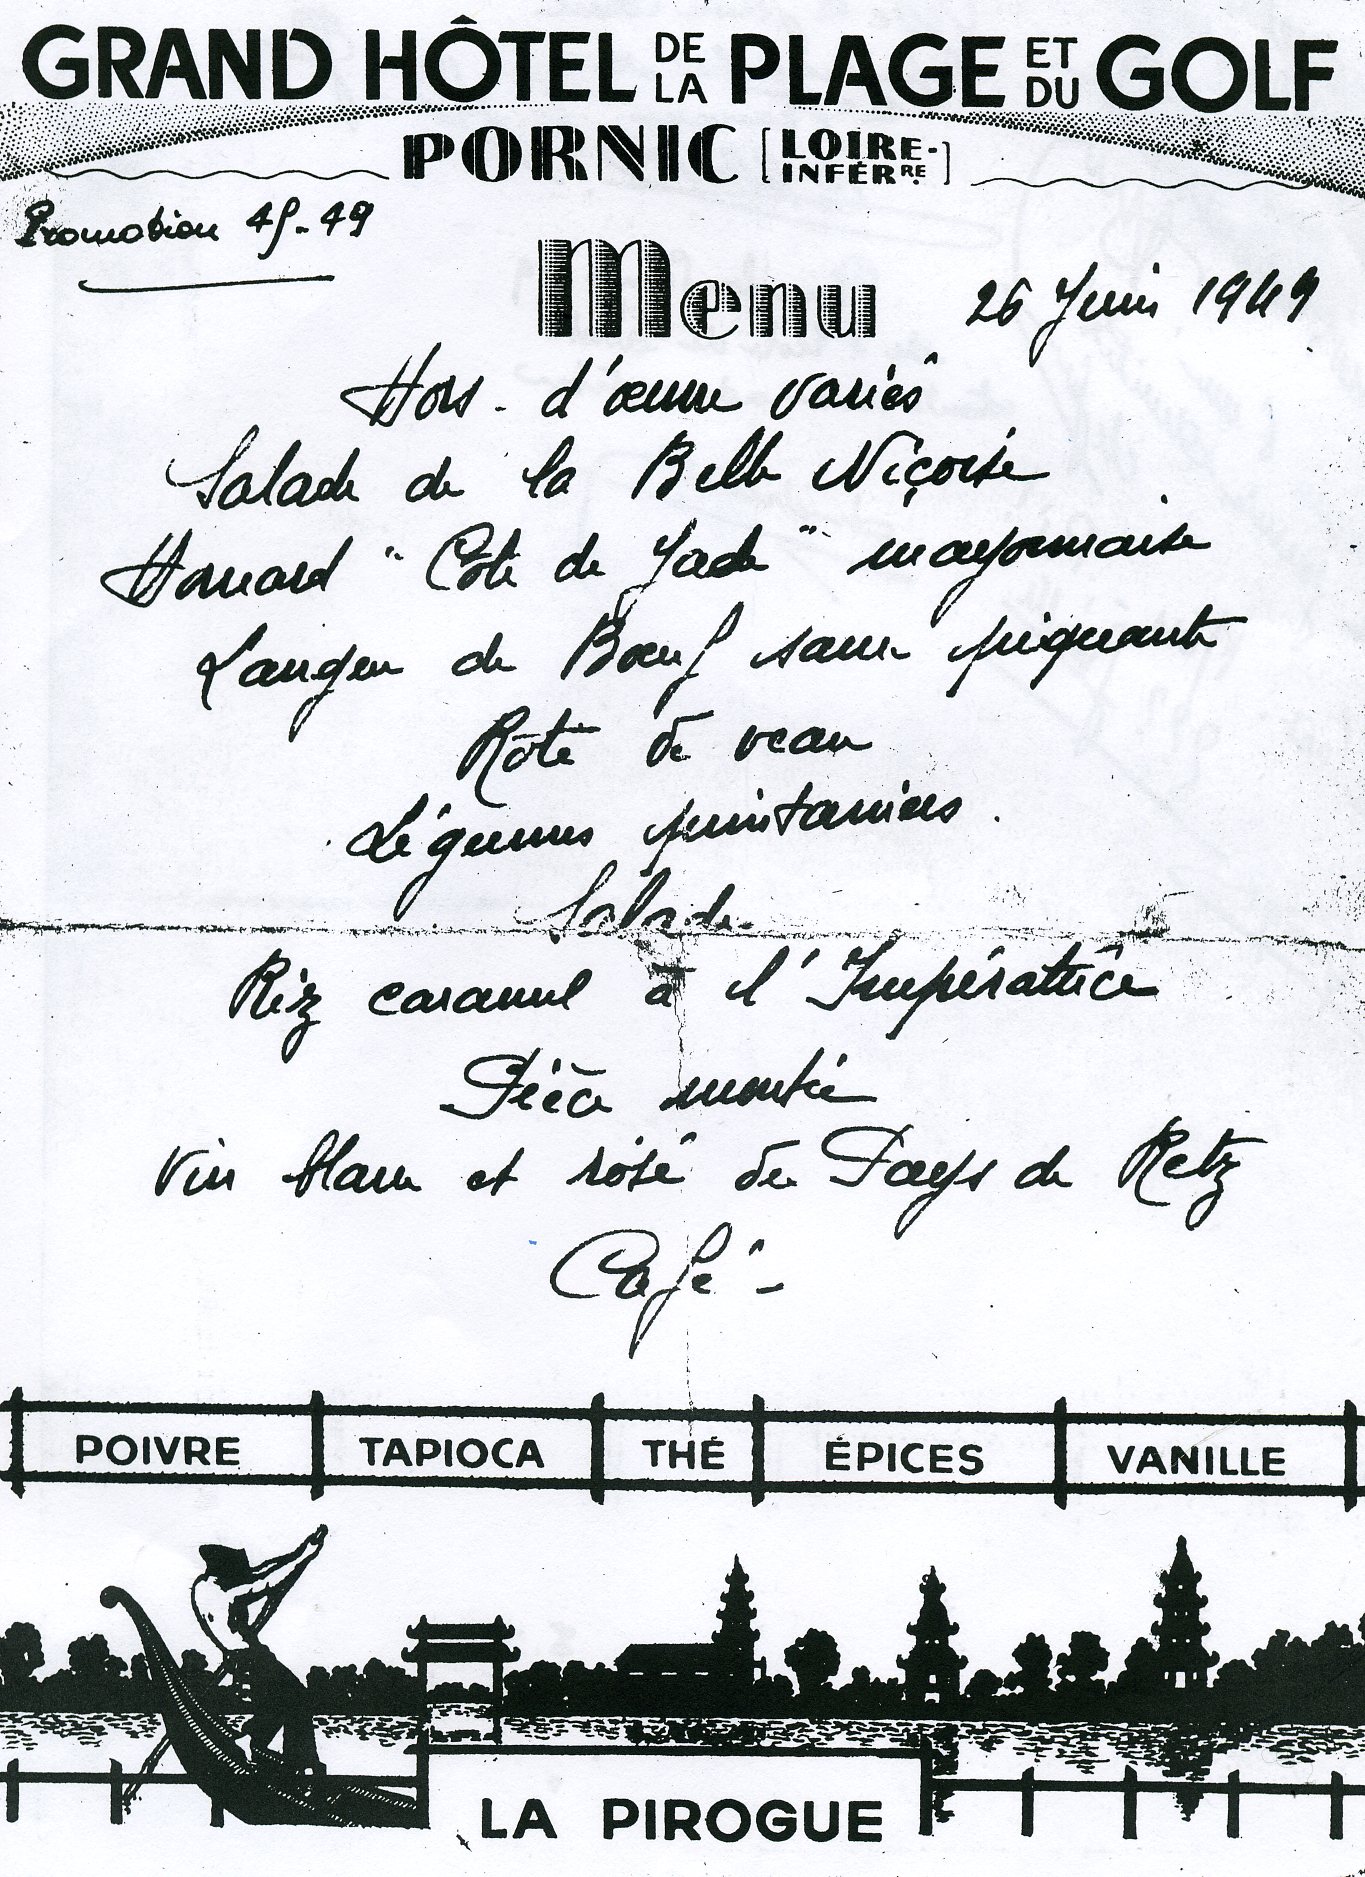 GRAND HÔTEL DE LA PLAGE ET DU GOLF
PORNIC [LOIRE-INFÉRRE.]
Promotion 45-49
Menu
26 Juin 1949
Hors-d'œuvre variés
Salade de la Belle Niçoise
Homard "Côte de Jade" mayonnaise
Langue de Bœuf sauce piquante
Rôti de veau
Légumes printaniers.
Salade-
Riz caramel à l'Impératrice
Pièce montée
Vin blanc et rosé du Pays de Retz
Café-
POIVRE TAPIOCA THÉ ÉPICES VANILLE
LA PIROGUE